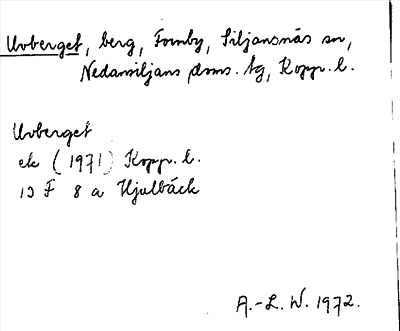 Uvberget, berg, Fornby, Siljansnäs sn,
Nedansiljans doms. tg, Kopp. l.
Uvberget
ek (1971) Kopp. l.
13 F 8 a Hjulbäck
A.-L. W. 1972.